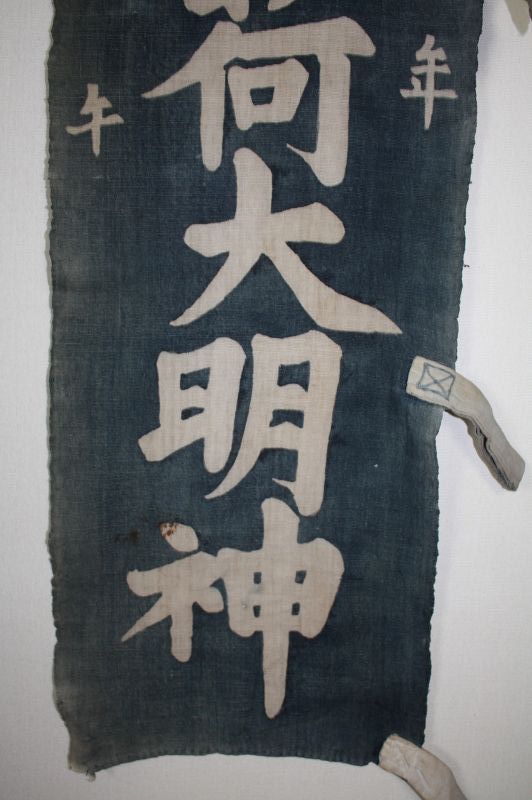 年
荷大明神
午